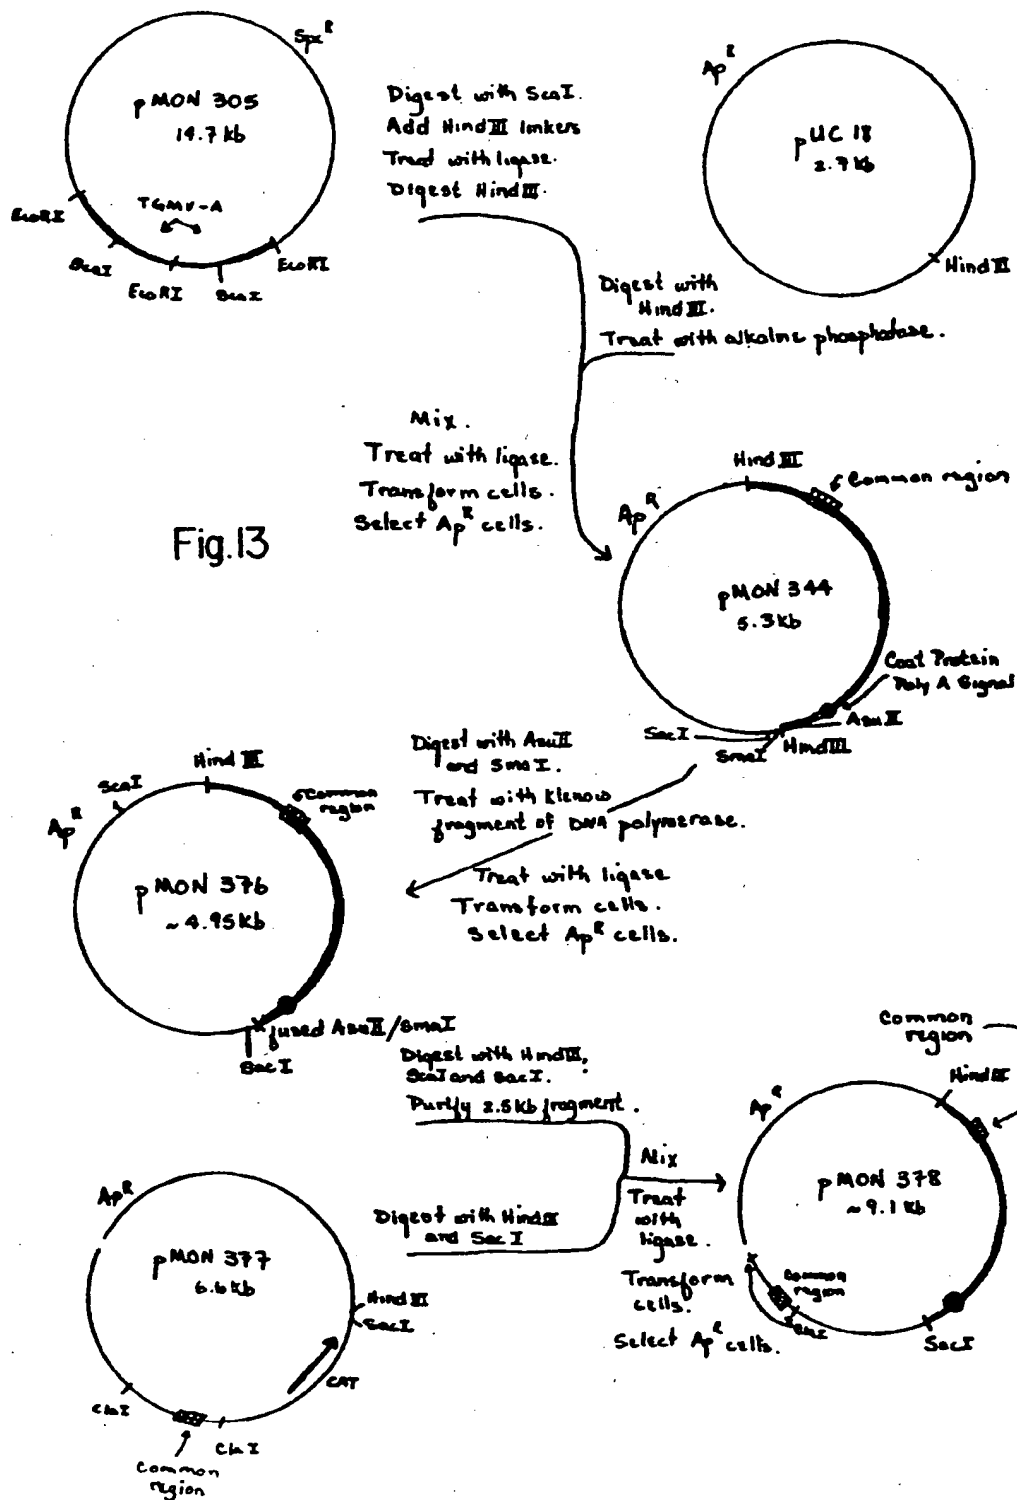 Spc R
pMON 305
14.7 kb
TGMV-A
EcoRI
ScaI
EcoRI
ScaI
EcoRI
Digest with ScaI.
Add Hind III linkers
Treat with ligase.
Digest Hind III.
Ap R
pUC 18
2.7kb
Hind III
Digest with
Hind III.
Treat with alkaline phosphatase.
Mix.
Treat with ligase.
Transform cells.
Select Ap R cells.
Fig.13
Hind III
Common region
Ap R
pMON 344
5.3kb
Coat Protein
Poly A Signal
AsuII
HindIII
SmaI
SacI
Digest with AsuII
and SmaI.
Treat with Klenow
fragment of DNA polymerase.
Treat with ligase
Transform cells.
Select Ap R cells.
Hind III
ScaI
Ap R
Common
region
pMON 376
~4.95kb
fused AsuII/SmaI
SacI
Digest with HindIII,
ScaI and SacI.
Purify 2.5kb fragment.
Ap R
pMON 377
6.6kb
Hind III
SacI
CAT
ClaI
ClaI
Common
region
Digest with HindIII
and Sac I
Mix
Treat
with
ligase.
Transform
cells.
Select Ap R cells.
Common
region
HindIII
Ap R
pMON 378
~9.1kb
Common
region
ClaI
SacI